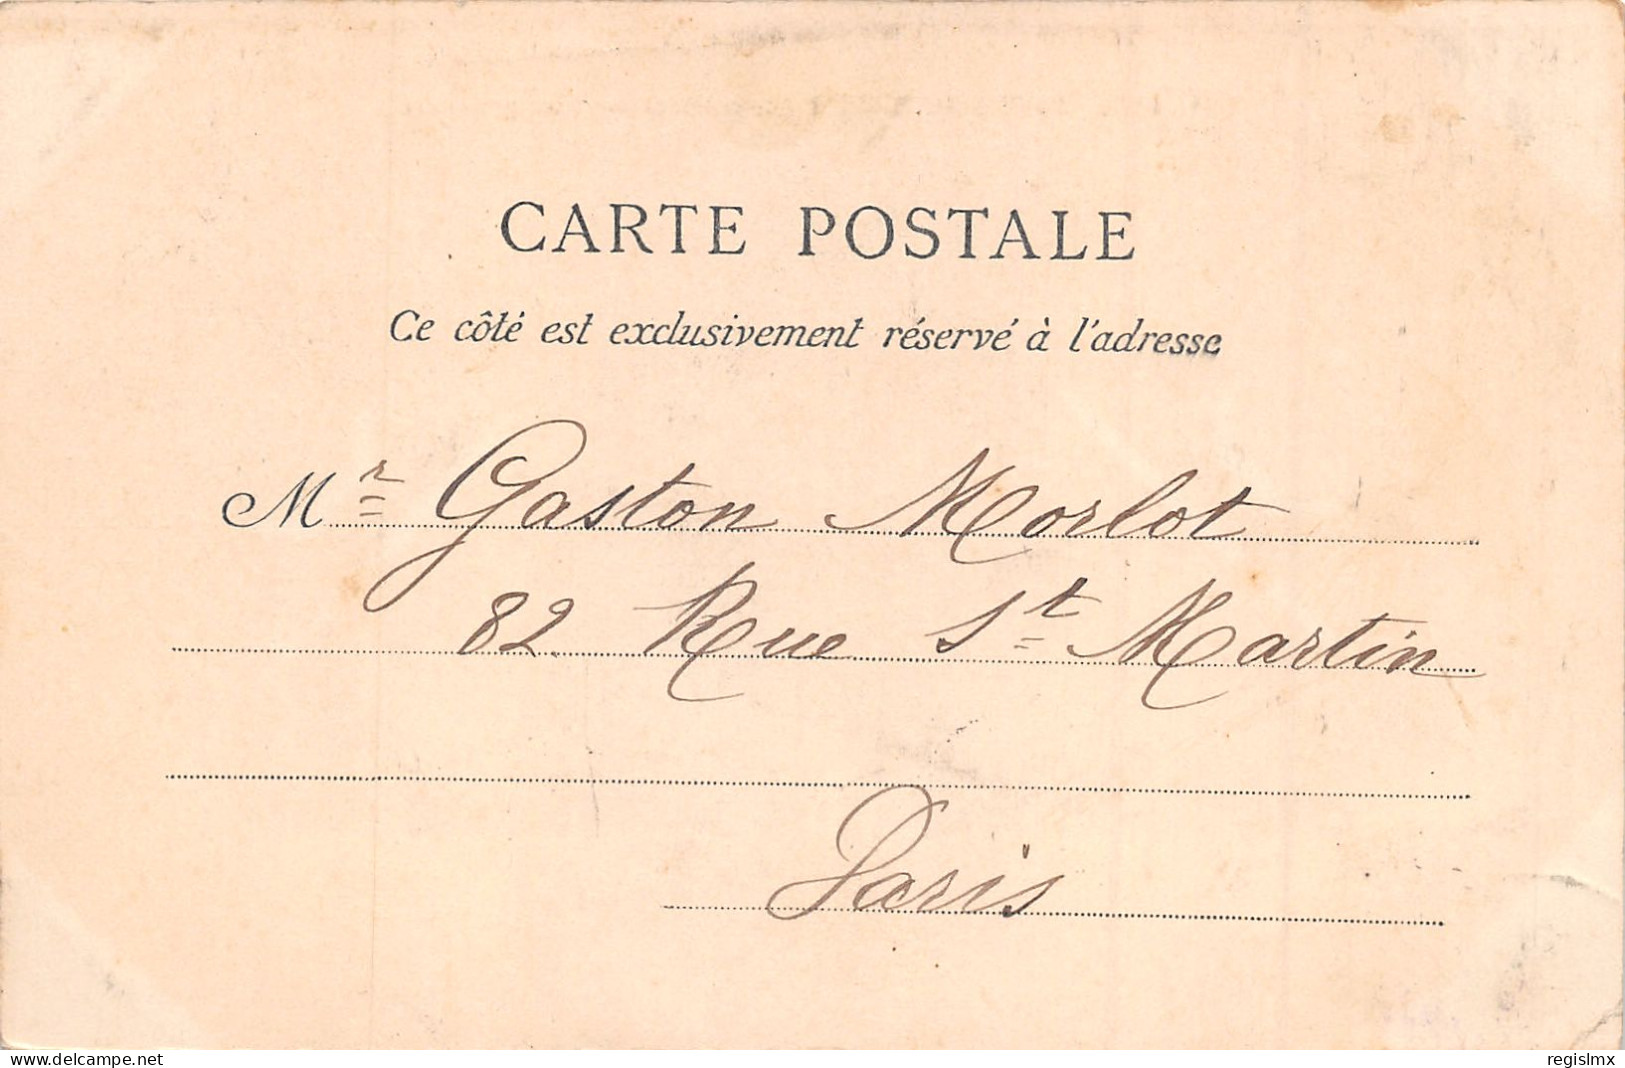 CARTE POSTALE
Ce côté est exclusivement réservé à l'adresse
Mr Gaston Morlot
82 Rue St Martin
Paris
www.delcampe.net
regislmx